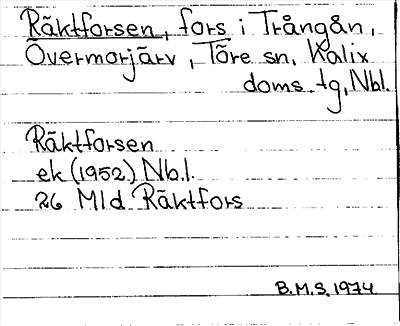 Räktforsen, fors i Trångån,
Övermorjärv, Töre sn, Kalix
doms. tg, Nbl.
Räktforsen
ek (1952) Nb.l.
26 Mld Räktfors
B.M.S. 1974